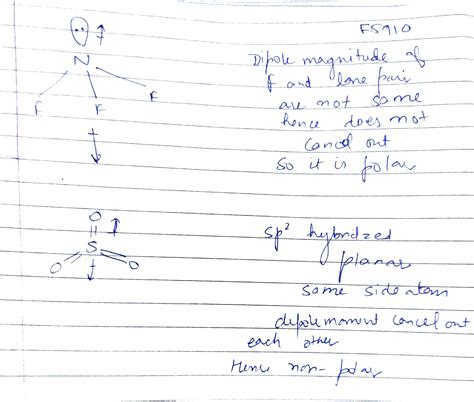 FS910
N
F
F
F
Dipole magnitude of
F and lone pair
are not same
hence does not
cancel out
So it is polar
O
S
O
O
sp² hybridized
planar
same side atom
dipole moment cancel out
each other
Hence non-polar